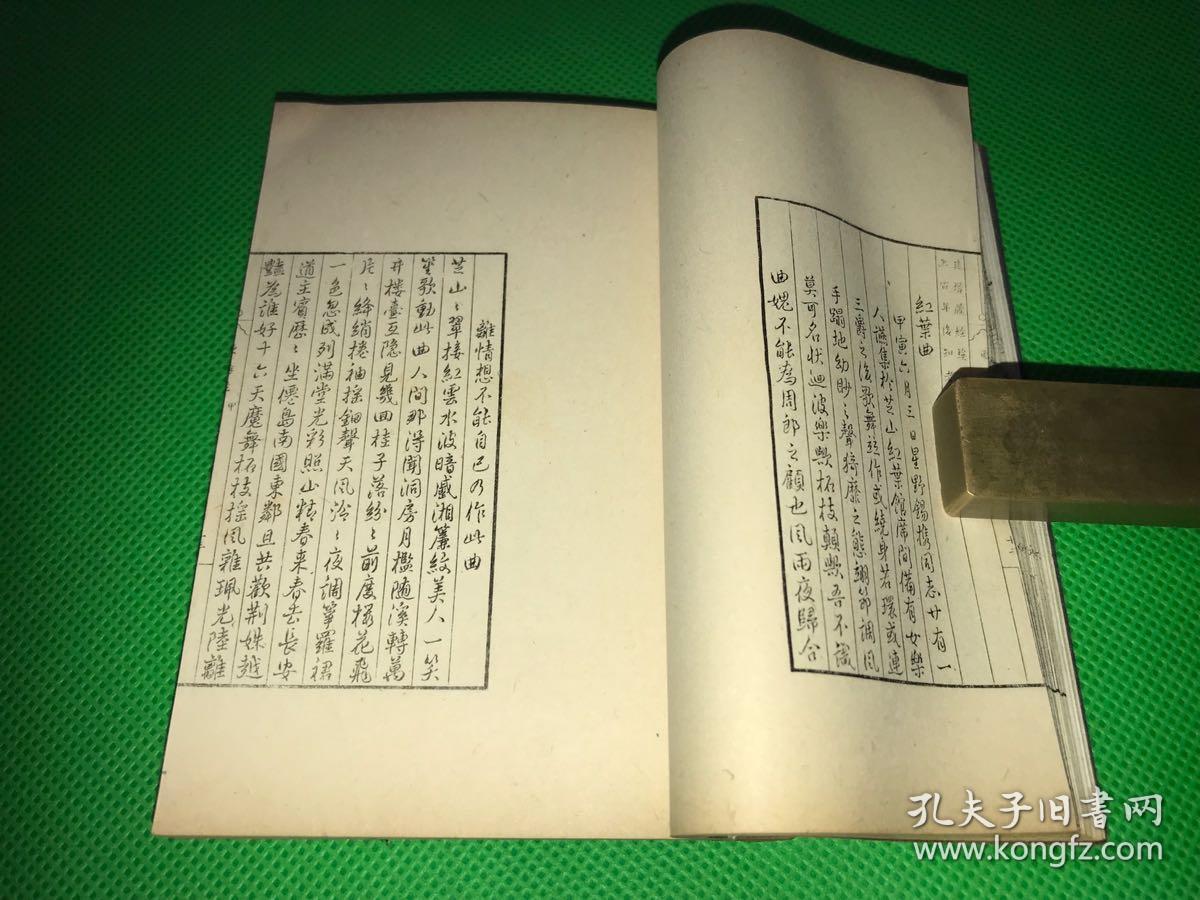 紅葉曲
甲寅六月三日星野錫携同志廿有一
人讌集於芝山紅葉館席間備有女樂
三爵之後歌舞並作或繞身若環或連
手蹋地幼眇之聲猗靡之態翩節調風
莫可名狀迴波樂歟柘枝顛歟吾不識
曲媿不能為周郎之顧也風雨夜歸合
離情想不能自已乃作此曲
芝山〻翠接紅雲水波暗蹙湘簾紋美人一笑
笙歌動此曲人間那得聞洞房月檻隨溪轉萬
井樓臺互隱見幾回桂子落紛〻前度櫻花飛
片〻絳綃捲袖採鈿聲天風泠〻夜調箏羅裙
一色忽成列滿堂光彩照山精春來春去長安
道主賓歷〻坐僊島南國東鄰且共歡荆姝越
豔為誰好十六天魔舞柘枝搖風雜珮光陸離
孔夫子旧書网
www.kongfz.com